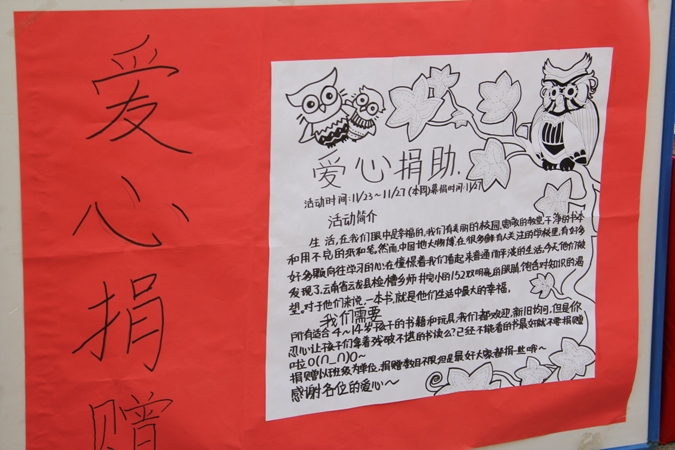 爱
心
捐
赠
爱心捐助.
活动时间:11/23~11/27(本周)募捐时间:11/27
活动简介
生活,在我们眼中是幸福的,我们有美丽的校园,宽敞的教室,干净的书本
和用不完的纸和笔。然而,中国地大物博,在很多鲜有人关注的学校里,有好多
好多颗向往学习的心在憧憬着我们看起来普通而平淡的生活,今天他们被
发现了,云南省云龙县检槽乡师井完小的152双明亮的眼睛,饱含对知识的渴
望。对于他们来说,一本书,就是他们生活中最大的幸福。
我们需要
所有适合4~14岁孩子的书籍和玩具,我们都欢迎,新旧均可,但是你
忍心让孩子们拿着残破不堪的书读么?已经不能看的书最好就不要捐赠
啦O(∩_∩)O~
捐赠以班级为单位,捐赠数目不限,但是最好大家都捐一些哦~
感谢各位的爱心~